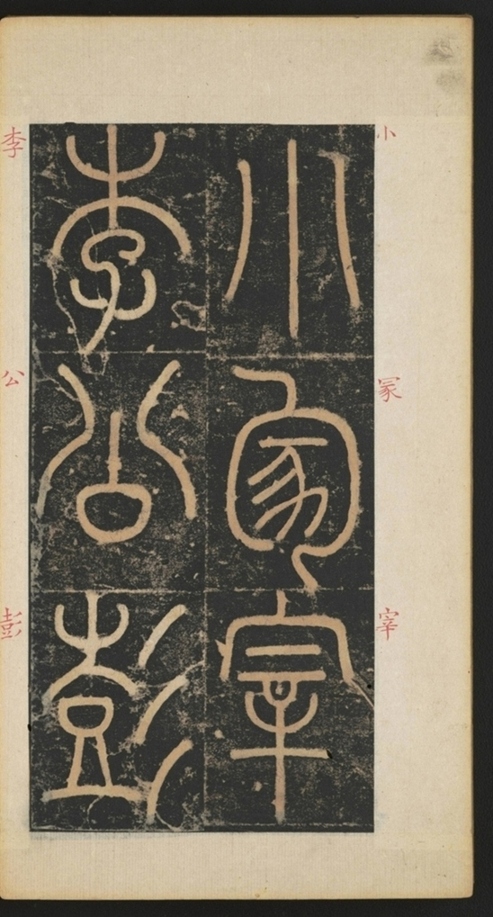 小冢宰
李公彭
小
冢
宰
李
公
彭